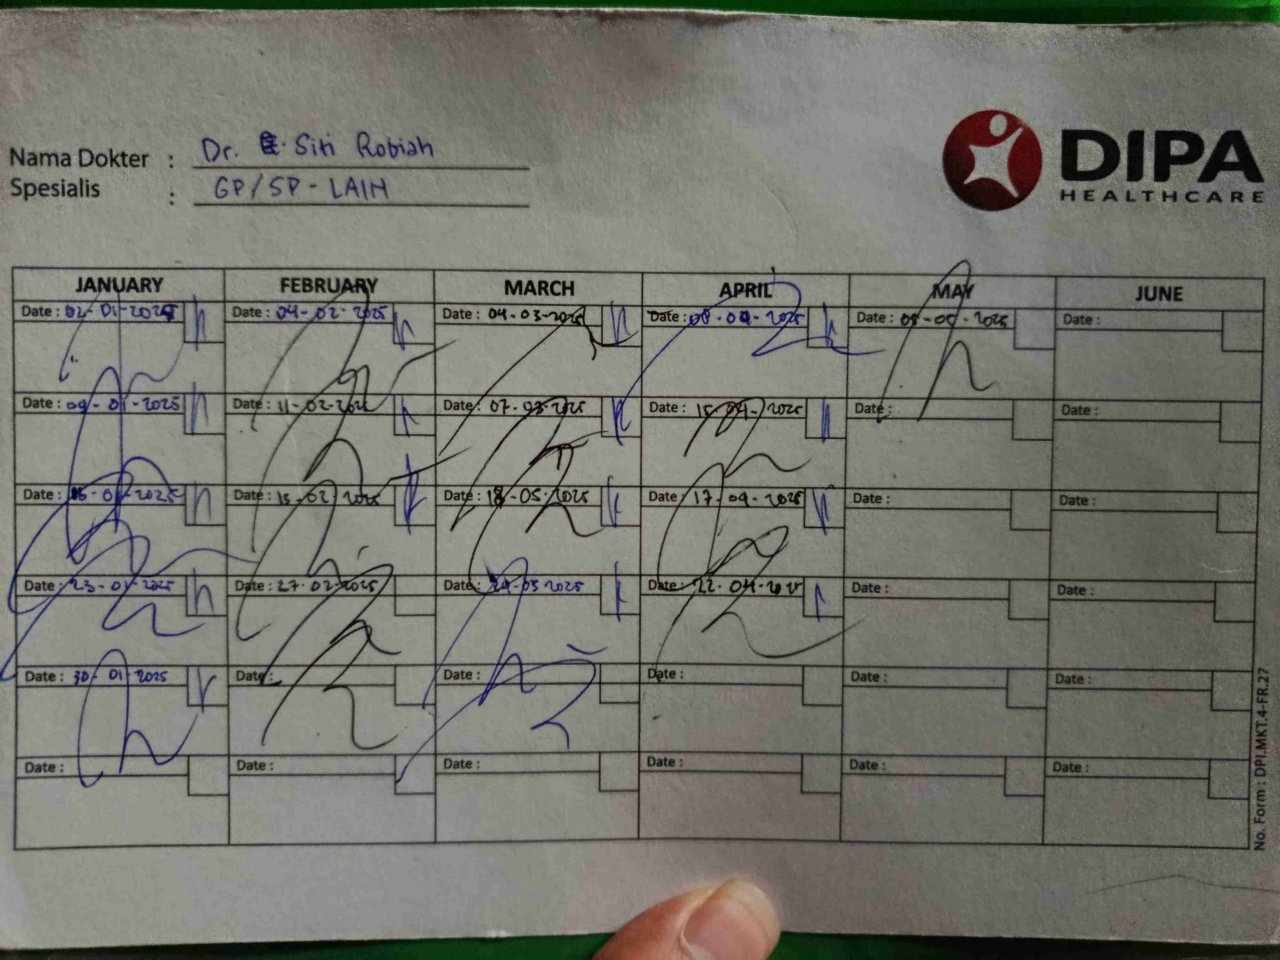 Nama Dokter : Dr. Siti Robiah
Spesialis : GP/SP - LAIN
DIPA
HEALTHCARE
JANUARY FEBRUARY MARCH APRIL MAY JUNE
Date : 02-01-2025 Date : 04-02-2025 Date : 04-03-2025 Date : 08-04-2025 Date : Date :
Date : 09-01-2025 Date : 11-02-2025 Date : 07-03-2025 Date : 15-04-2025 Date : Date :
Date : Date : Date : 18-03-2025 Date : 17-04-2025 Date : Date :
Date : 23-01-2025 Date : 27-02-2025 Date : Date : 22-04-2025 Date : Date :
Date : 30-01-2025 Date : Date : Date : Date : Date :
Date : Date : Date : Date : Date : Date :
No. Form : DPI.MKT.4-FR.27